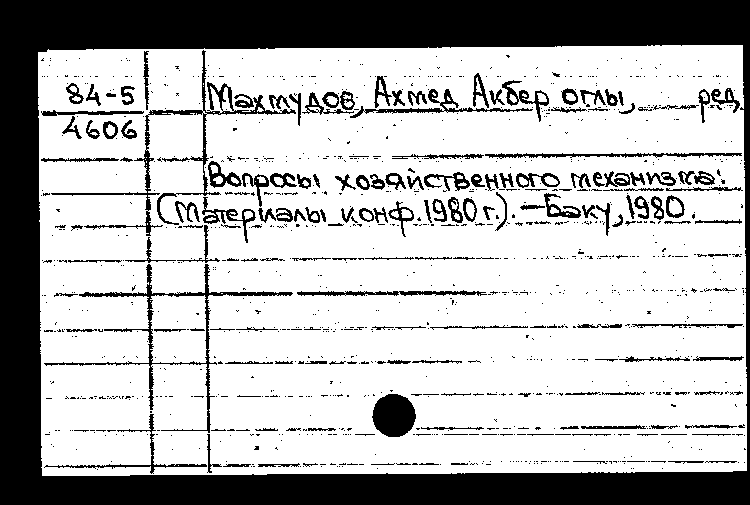 84-5 Махмудов, Ахмед Акбер оглы, ред.
4606
Вопросы хозяйственного механизма:
(Материалы конф. 1980 г.). — Баку, 1980.